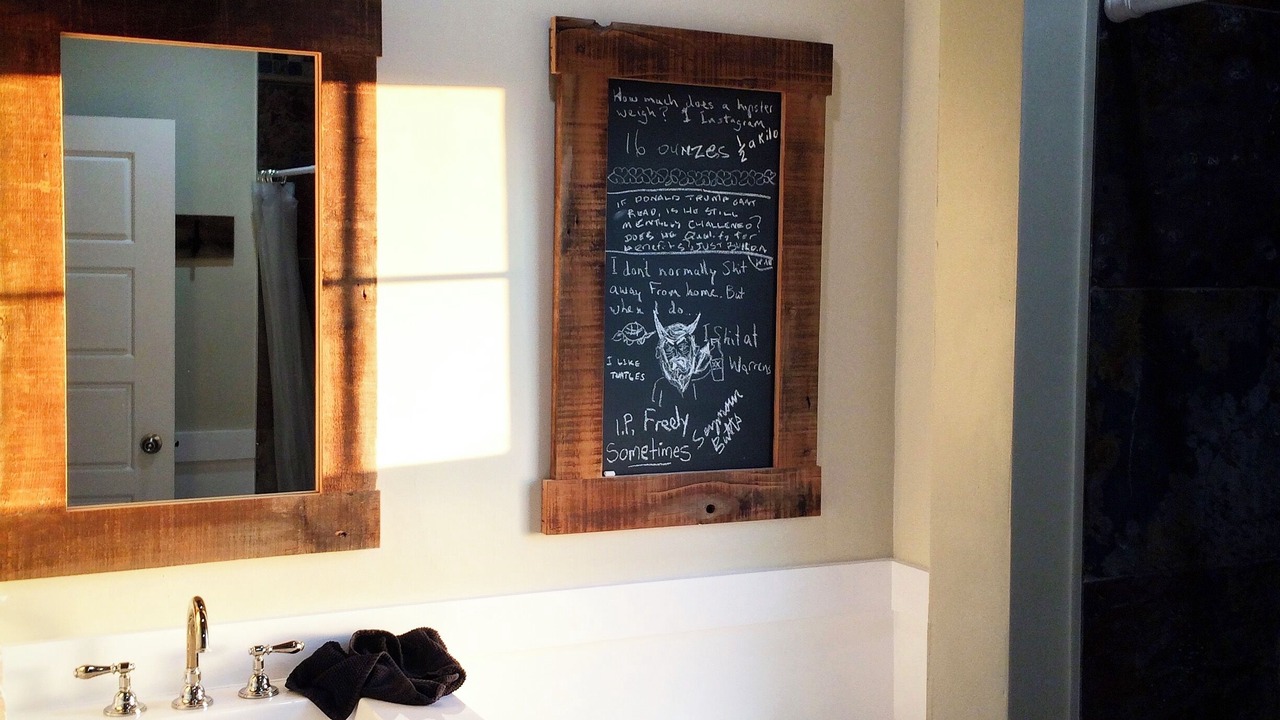 How much does a hipster
weigh? 1 Instagram
16 OUNZES 1/2 a Kilo
IF DONALD TRUMP CANT
READ, IS HE STILL
MENTALLY CHALLENGED?
DOES HE Qualify for
benefits? JUST
I dont normally Shit
away From home. But
when I do..
I Shit at
Warrens
I LIKE
TURTLES
I.P. Freely
Sometimes
Seymour
Butts